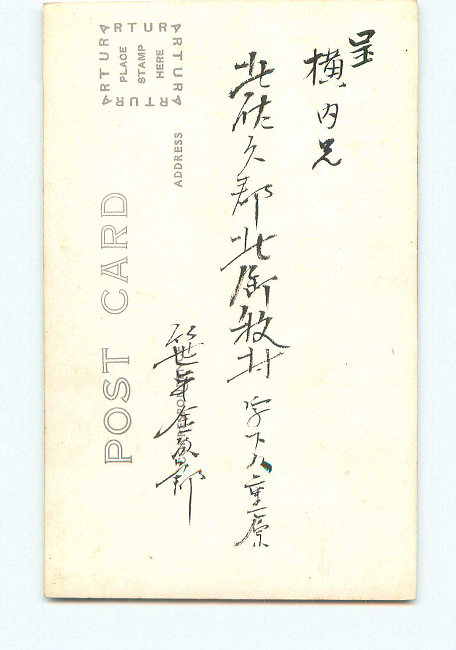 呈
横内兄
北佐久郡北御牧村 字下八重原
POST CARD
ADDRESS
ARTURA
ARTURA
ARTURA
ARTURA
PLACE
STAMP
HERE